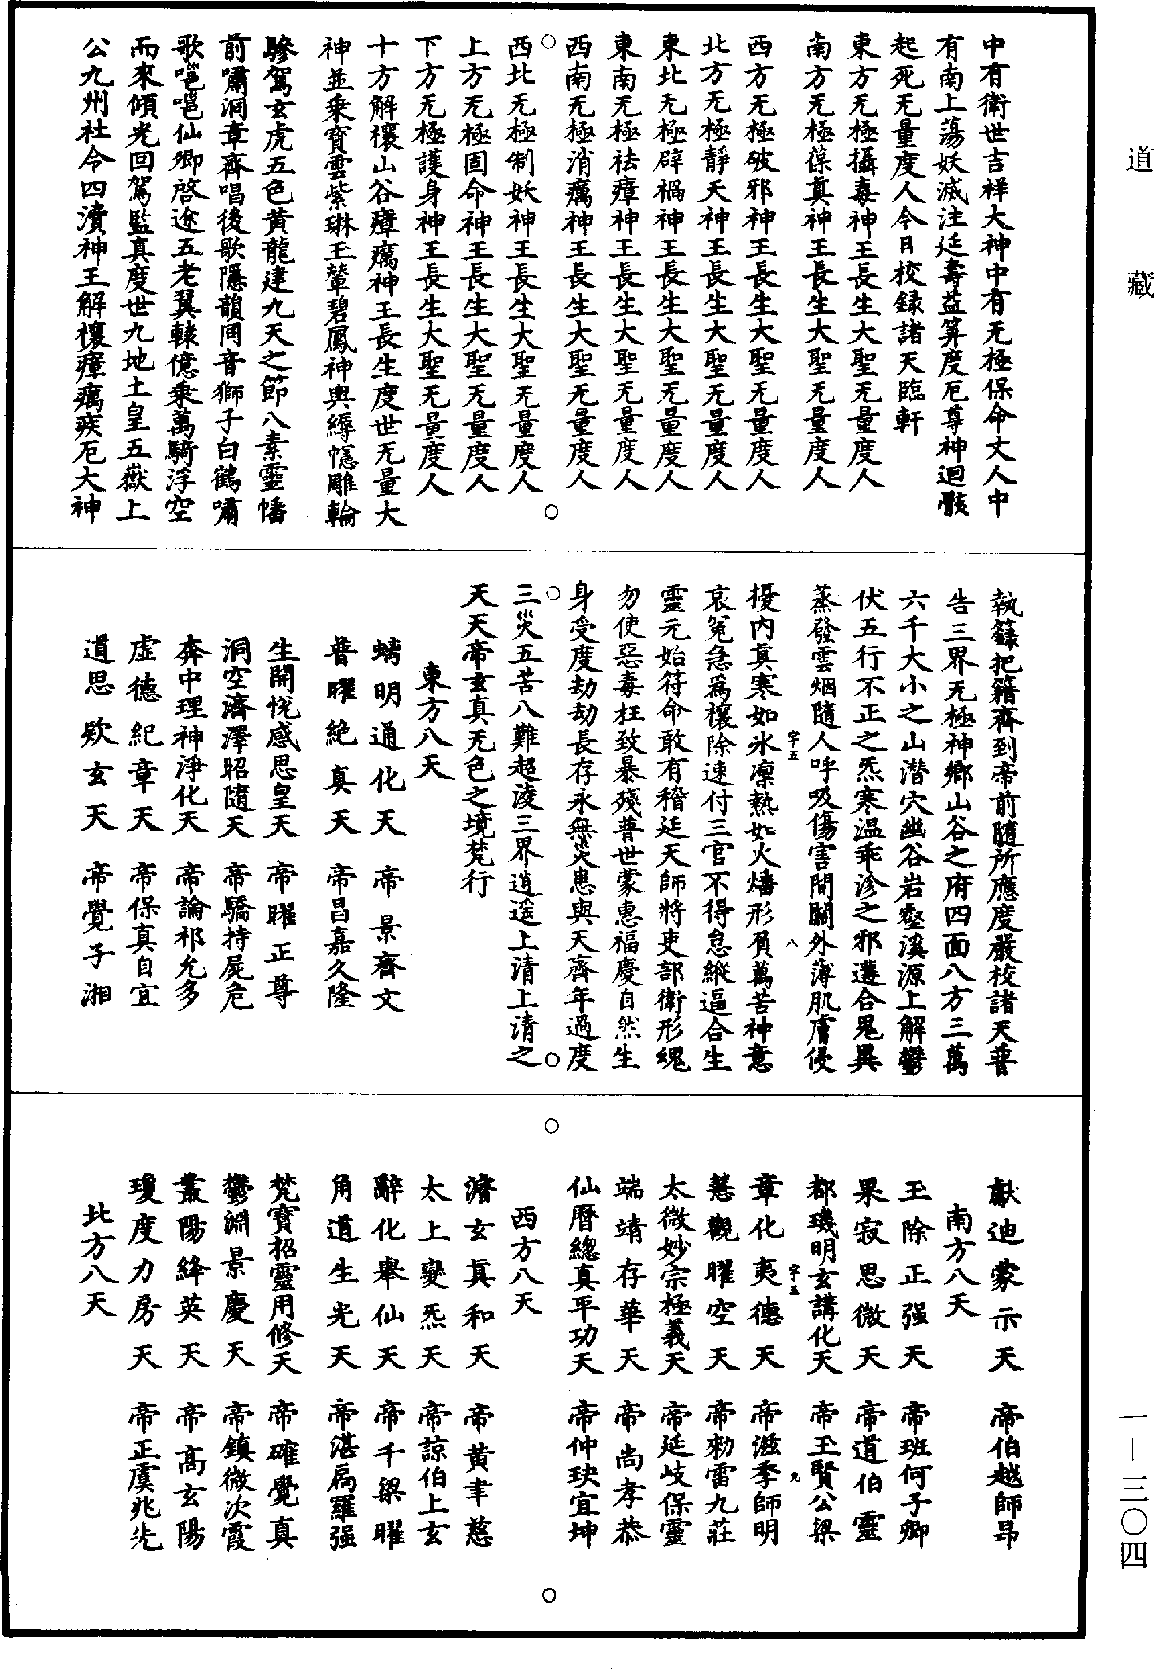 道藏
中有衛世吉祥大神中有无極保命丈人中
有南上蕩妖滅注延壽益算度厄尊神迴骸
起死无量度人今日校録諸天臨軒
東方无極攝毒神王長生大聖无量度人
南方无極葆真神王長生大聖无量度人
西方无極破邪神王長生大聖无量度人
北方无極靜天神王長生大聖无量度人
東北无極辟禍神王長生大聖无量度人
東南无極祛瘴神王長生大聖无量度人
西南无極消癘神王長生大聖无量度人
西北无極制妖神王長生大聖无量度人
上方无極固命神王長生大聖无量度人
下方无極護身神王長生大聖无量度人
十方解禳山谷瘴癘神王長生度世无量大
神並乗寳雲紫琳玉輦碧鳳神輿縟幰雕輪
驂駕玄虎五色黄龍建九天之節八素靈幡
前嘯洞章齊唱後歌隱韻同音獅子白鶴嘯
歌嗈嗈仙卿啓途五老翼轅億乗萬騎浮空
而來傾光回駕監真度世九地土皇五嶽上
公九州社令四瀆神王解禳瘴癘疾厄大神
執籙把籍齊到帝前隨所應度嚴校諸天普
告三界无極神鄉山谷之府四面八方三萬
六千大小之山潛穴幽谷岩壑溪源上解鬱
伏五行不正之炁寒温乖沴之邪遘合鬼異
蒸發雲烟隨人呼吸傷害閒關外薄肌膚侵
字五
八
擾内真寒如氷凛熱如火燔形質萬苦神意
哀冤急爲禳除速付三官不得怠縱逼合生
靈元始符命敢有稽延天師將吏部衛形魂
勿使惡毒枉致暴殘普世蒙惠福慶自然生
身受度劫劫長存永無災患與天齊年過度
三災五苦八難超淩三界逍遥上清上清之
天天帝玄真无色之境梵行
東方八天
蟜明通化天 帝景齊文
普曜絶真天 帝昌嘉久隆
生開悦感思皇天 帝曜正尊
洞空濟澤昭隨天 帝驕持屍危
奔中理神淨化天 帝論祁允多
虚德紀章天 帝保真自宜
道思欵玄天 帝覺子湘
獻迪蒙示天 帝伯越師昂
南方八天
玉除正强天 帝班何子卿
果寂思微天 帝道伯靈
都璣明玄講化天 帝玉賢公梁
字五
九
章化夷德天 帝滋季師明
慧觀曜空天 帝勑雷九莊
太微妙宗極義天 帝延岐保靈
端靖存華天 帝尚孝恭
仙曆總真平功天 帝仲玦宜坤
西方八天
澹玄真和天 帝黄聿慈
太上變炁天 帝諒伯上玄
辭化舉仙天 帝千梁曜
角道生光天 帝湛扃羅强
梵寳招靈用修天 帝確覺真
鬱淵景慶天 帝鎮微次霞
叢陽絳英天 帝高玄陽
瓊度力房天 帝正虞兆先
北方八天
一—三〇四